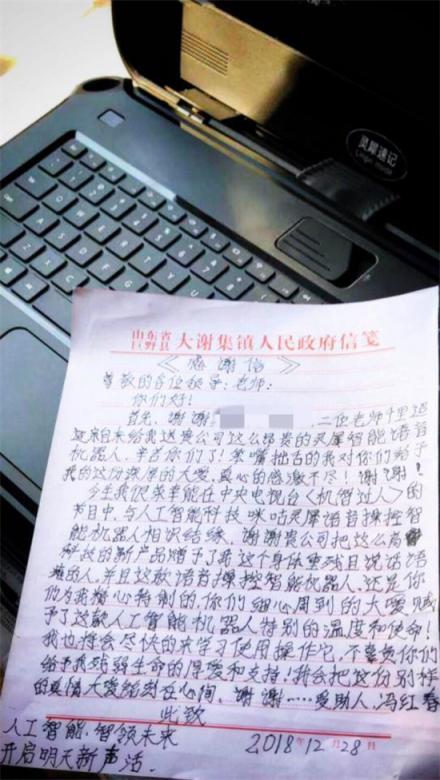 灵犀速记
山东省
巨野县
大谢集镇人民政府信笺
《感谢信》
尊敬的各位领导;老师:
你们好!
首先,谢谢 二位老师千里迢
迢来自来给我送贵公司这么昂贵的灵犀智能语音
机器人,辛苦你们了!笨嘴拙舌的我对你们给予
我的这份深厚的大爱,真心的感激不尽!谢谢!
今生我很荣幸能在中央电视台《机智过人》的
节目中,与人工智能科技咪咕灵犀语音操控智
能机器人相识结缘。谢谢贵公司把这么高
科技的新产品赠予了我这个身体重残且说话语
的人,并且这款语音操控智能机器人,还是你
们为我精心特制的,你们细心周到的大爱赋
予了这款人工智能机器人特别的温度和使命!
我也将会尽快的来学习使用操作它,不辜负你们
给予我残弱生命的厚爱和支持!我会把这份别样
的真情大爱铭刻在心间。谢谢……受助人:冯红春
此致
人工智能,智领未来
开启明天新声活.
2018年12月28日